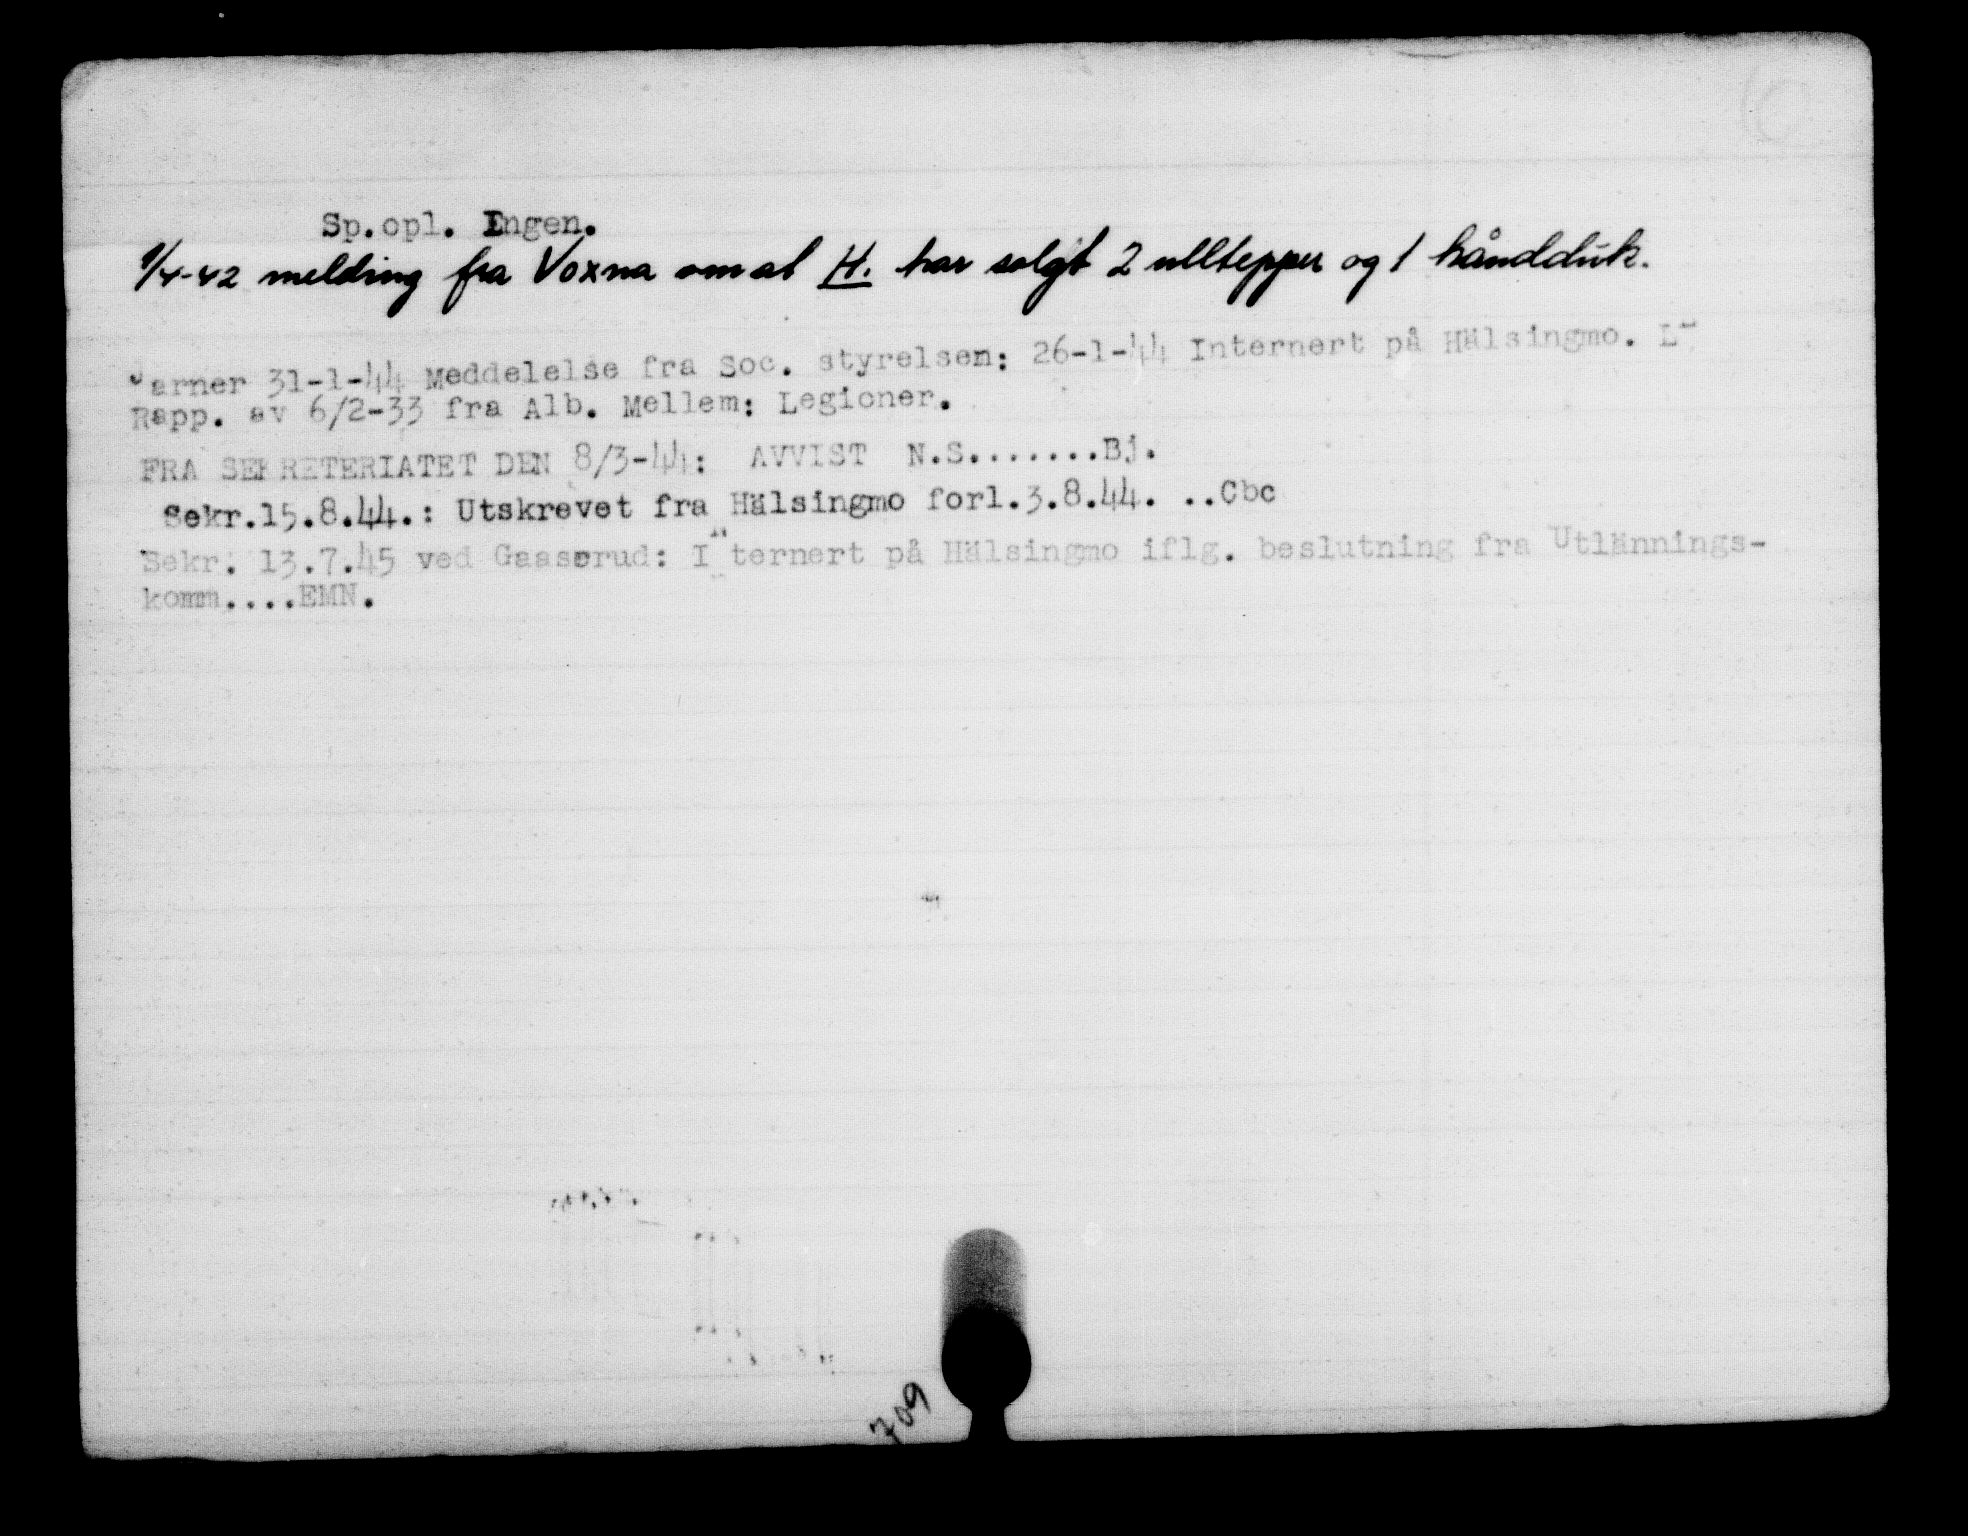 Sp.opl. Ingen.
9/4-42 melding fra Voxna om at H. har solgt 2 ulltepper og 1 håndduk.
arner 31-1-44 Meddelelse fra Soc. styrelsen: 26-1-44 Internert på Hälsingmo. L-
Rapp. av 6/2-33 fra Alb. Mellem: Legioner.
FRA SEKRETERIATET DEN 8/3-44: AVVIST N.S.......Bj.
Sekr.15.8.44.: Utskrevet fra Hälsingmo forl.3.8.44. ..Cbc
Sekr. 13.7.45 ved Gaaserud: Internert på Hälsingmo iflg. beslutning fra Utlännings-
komm....EMN.
709